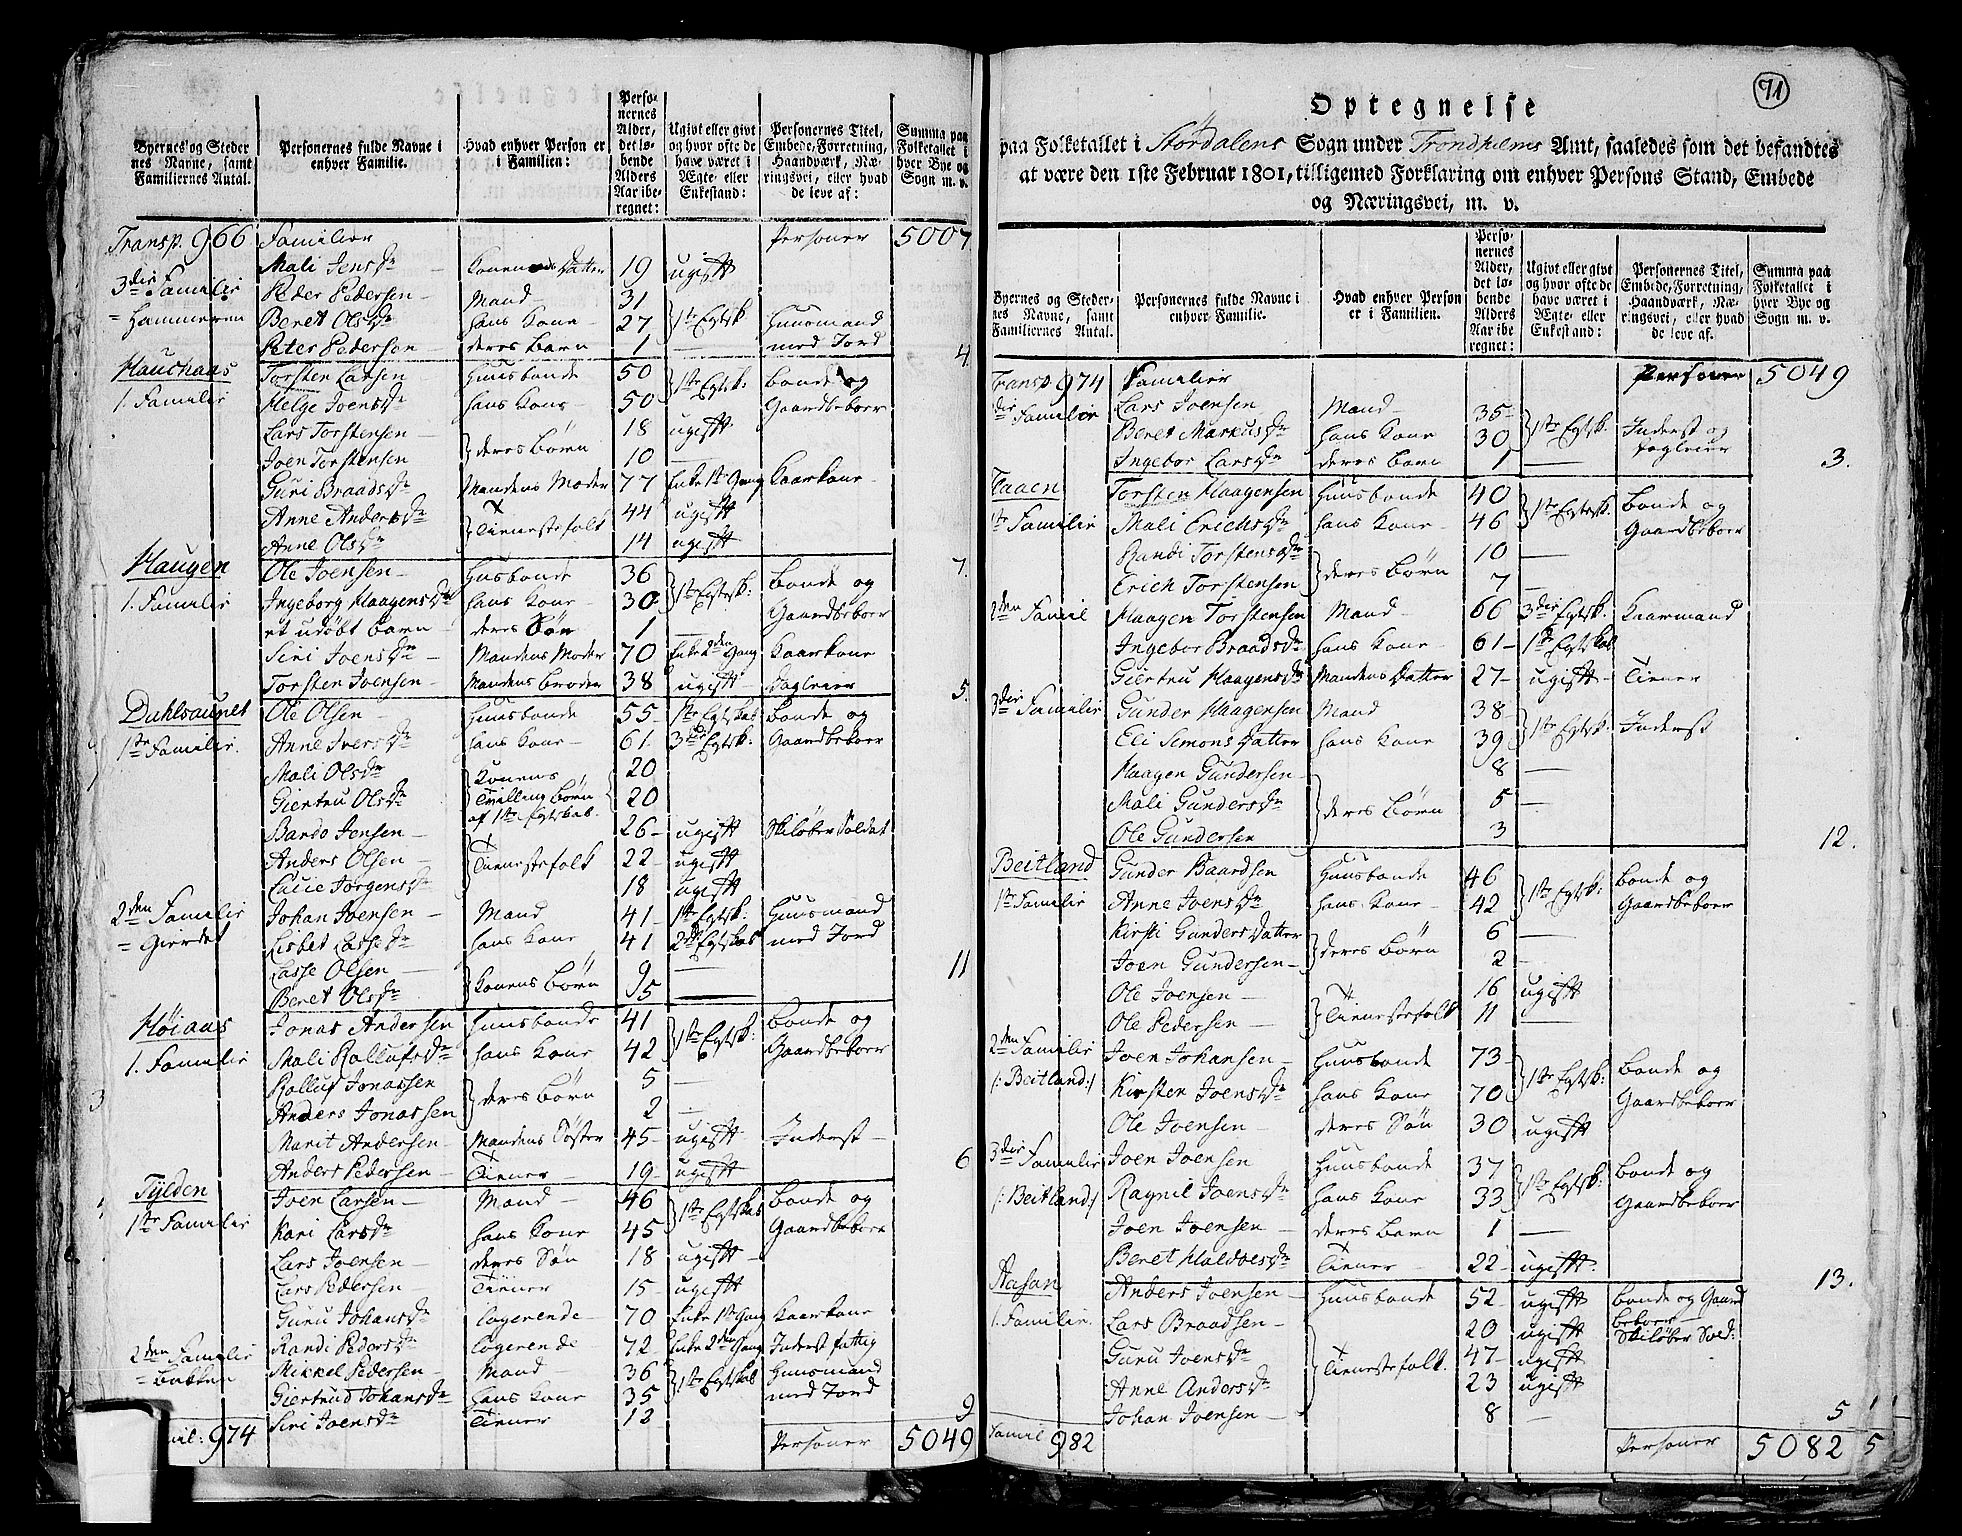 Byernes og Steder nes Navne, samt Familiernes Antal. | Personernes fulde Navne i enhver Familie. | Hvad enhver Person er i Familien: | Personernes Alder, det løbende Alders Aar iberegnet: | Ugivt eller givt og hvor ofte de have været i Ægte- eller Enkestand: | Personernes Titel, Embede, Forretning, Haandværk, Næringsvei, eller hvad de leve af: | Summa paa Folketallet i hver Bye og Sogn m. v.
Transp. 966 Familier Personer 5007
Mali Jensdr Konens Datter 19 ugift
3die Familie Peder Pedersen Mand 31 1ste Egtsk
= Hammeren Beret Olsdr hans Kone 27 Huusmand
Peter Pedersen deres Barn 1 — med Jord 4.
Hauchaas Torsten Larsen Huusbonde 50 1ste Egtsk: Bonde og
1. Familie Helge Joensdr hans Kone 50 Gaardbeboer
Lars Torstensen 18 ugift
Joen Torstensen deres Børn 10 —
Guri Braadsdr Mandens Moder 77 Enke 1ste Gang Kaarkone
Anne Andersdr 44 ugift
Anne Olsdr Tienestefolk 14 ugift 7.
Haugen Ole Joensen Husbonde 36 1ste Egtesk: Bonde og
1. Familie Ingeborg Haagensdr hans Kone 30 Gaardbeboer
et udøbt barn deres Søn 1 —
Siri Joensdr Mandens Moder 70 Enke 2den Gang Kaarkone
Torsten Joensen Mandens Broder 38 ugift Dagleier 5.
Dahlsaunet Ole Olsen Huusbonde 55 1ste Egtskab Bonde og
1ste Familie. Anne Iversdr hans Kone 61 3die Egtsk: Gaardbeboer
Mali Olsdr Konens 20
Giertru Olsdr Tvilling Børn af 1ste Egtskab. 20
Bardo Jensen 26 ugift Skiløber Soldat
Anders Olsen Tienestefolk 22 ugift
Lucie Jørgensdr 18 ugift
2den Familie Johan Joensen Mand 41 1ste Egtsk: Huusmand
= Gierdet Lisbet Lassedr hans Kone 41 2det Egtskab med Jord
Lasse Olsen Konens Børn 9 — 11
Beret Olsdr 5 —
Høiaas Jonas Andersen Huusbonde 41 1ste Egtsk: Bonde og
1. Familie Mali Rollufsdr hans Kone 42 Gaardbeboer
Rolluf Jonassen 5 —
Anders Jonassen deres Børn 2 —
Marit Andersen Mandens Søster 45 ugift Inderst
Anders Pedersen Tiener 19 ugift 6
Tylden Joen Larsen Mand 46 1ste Egtskab Bonde og
1ste Familie Kari Larsdr hans Kone 45 Gaardbeboer
Lars Joensen deres Søn 18 ugift
Lars Pedersen Tiener 15 ugift
Guru Johansdr Logerende 70 Enke 1ste Gang Kaarkone
Randi Pedersdr Logerende 72 Enke 2den Gang Inderst fattig
2den Familie Mikkel Pedersen Mand 36 1ste Egtskab Huusmand
= Bakken Giertrud Johansdr hans Kone 35 med Jord
Siri Joensdr Tiener 12 9
mil: 974 Personer 5049
71
Optegnelse
paa Folketallet i Stordalens Sogn under Trondhiems Amt, saaledes som det befandtes
at være den 1ste Februar 1801, tilligemed Forklaring om enhver Persons Stand, Embede
og Næringsvei, m. v.
Byernes og Stedernes Navne, samt Familiernes Antal. | Personernes fulde Navne i enhver Familie. | Hvad enhver Person er i Familien. | Personernes Alder, det løbende Alders Aar iberegnet: | Ugivt eller givt og hvor ofte de have været i Ægte- eller Enkestand: | Personernes Titel, Embede, Forretning, Haandværk, Næringsvei, eller hvad de leve af. | Summa paa Folketallet i hver Bye og Sogn m. v.
Transp 974 Familier Personer 5049
die Familie Lars Joensen Mand 35 1ste Egtsk. Inderst og
Beret Markusdr hans Kone 30 Dagleier
Ingebor Larsdr deres Barn 1 — 3.
Taaen Torsten Haagensen Huusbonde 40 1ste Egtesk. Bonde og
1ste Familie Mali Erichsdr hans Kone 46 Gaardbeboer
Randi Torstensdr 10 —
Erich Torstensen deres Børn 7 —
2den Famil Haagen Torstensen Mand 66 3die Egtsk. Kaarmand
Ingebor Braadsdr hans Kone 61 1ste Egtskab
Giertru Haagensdr Mandens Datter 27 ugift Tiener
3die Familie Gunder Haagensen Mand 38 1ste Egtsk. Inderst
Eli Semons Datter hans Kone 39
Haagen Gundersen 8 —
Mali Gundersdr deres Børn 5 —
Ole Gundersen 3 12.
Beitland Gunder Baardsen Huusbonde 46 1ste Egtsk: Bonde og
1ste Familie Anne Joensdr hans Kone 42 Gaardbeboer
Kirsti Gunders Datter 6 —
Joen Gundersen deres Børn 2 —
Ole Joensen 16 ugift
Ole Pedersen Tienestefolk 11 —
2den Familie Joen Johansen Huusbonde 73 1ste Egtsk: Bonde og
(: Beitland:) Kirsten Joensdr hans Kone 70 Gaardbeboer
Ole Joensen deres Søn 30 ugift
3die Familie Joen Joensen Huusbonde 37 1ste Egtsk: Bonde og
(: Beitland:) Ragnil Joensdr hans Kone 33 Gaardbeboer
Joen Joensen deres Barn 1 —
Beret Haldoesdr Tiener 22 ugift. 13.
Aasan Anders Joensen Huusbonde 52 ugift Bonde og Gaard
1. Familie. Lars Braadsen 20 ugift beboer Skiløber Sold:
Guru Joensdr Tienestefolk. 47 ugift
Anne Andersdr 23 ugift
Johan Joensen 8 — 5
Famil 982 Personer 5082 5